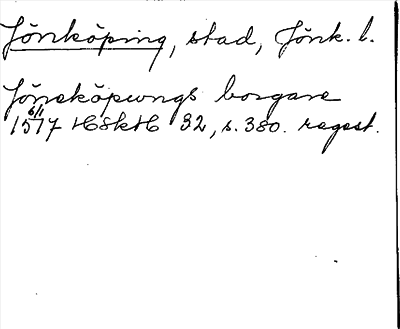 Jönköping, stad, Jönk. l.
Jöneköpungs borgare
6/1
1517 HSkH 32, s. 380. regest.